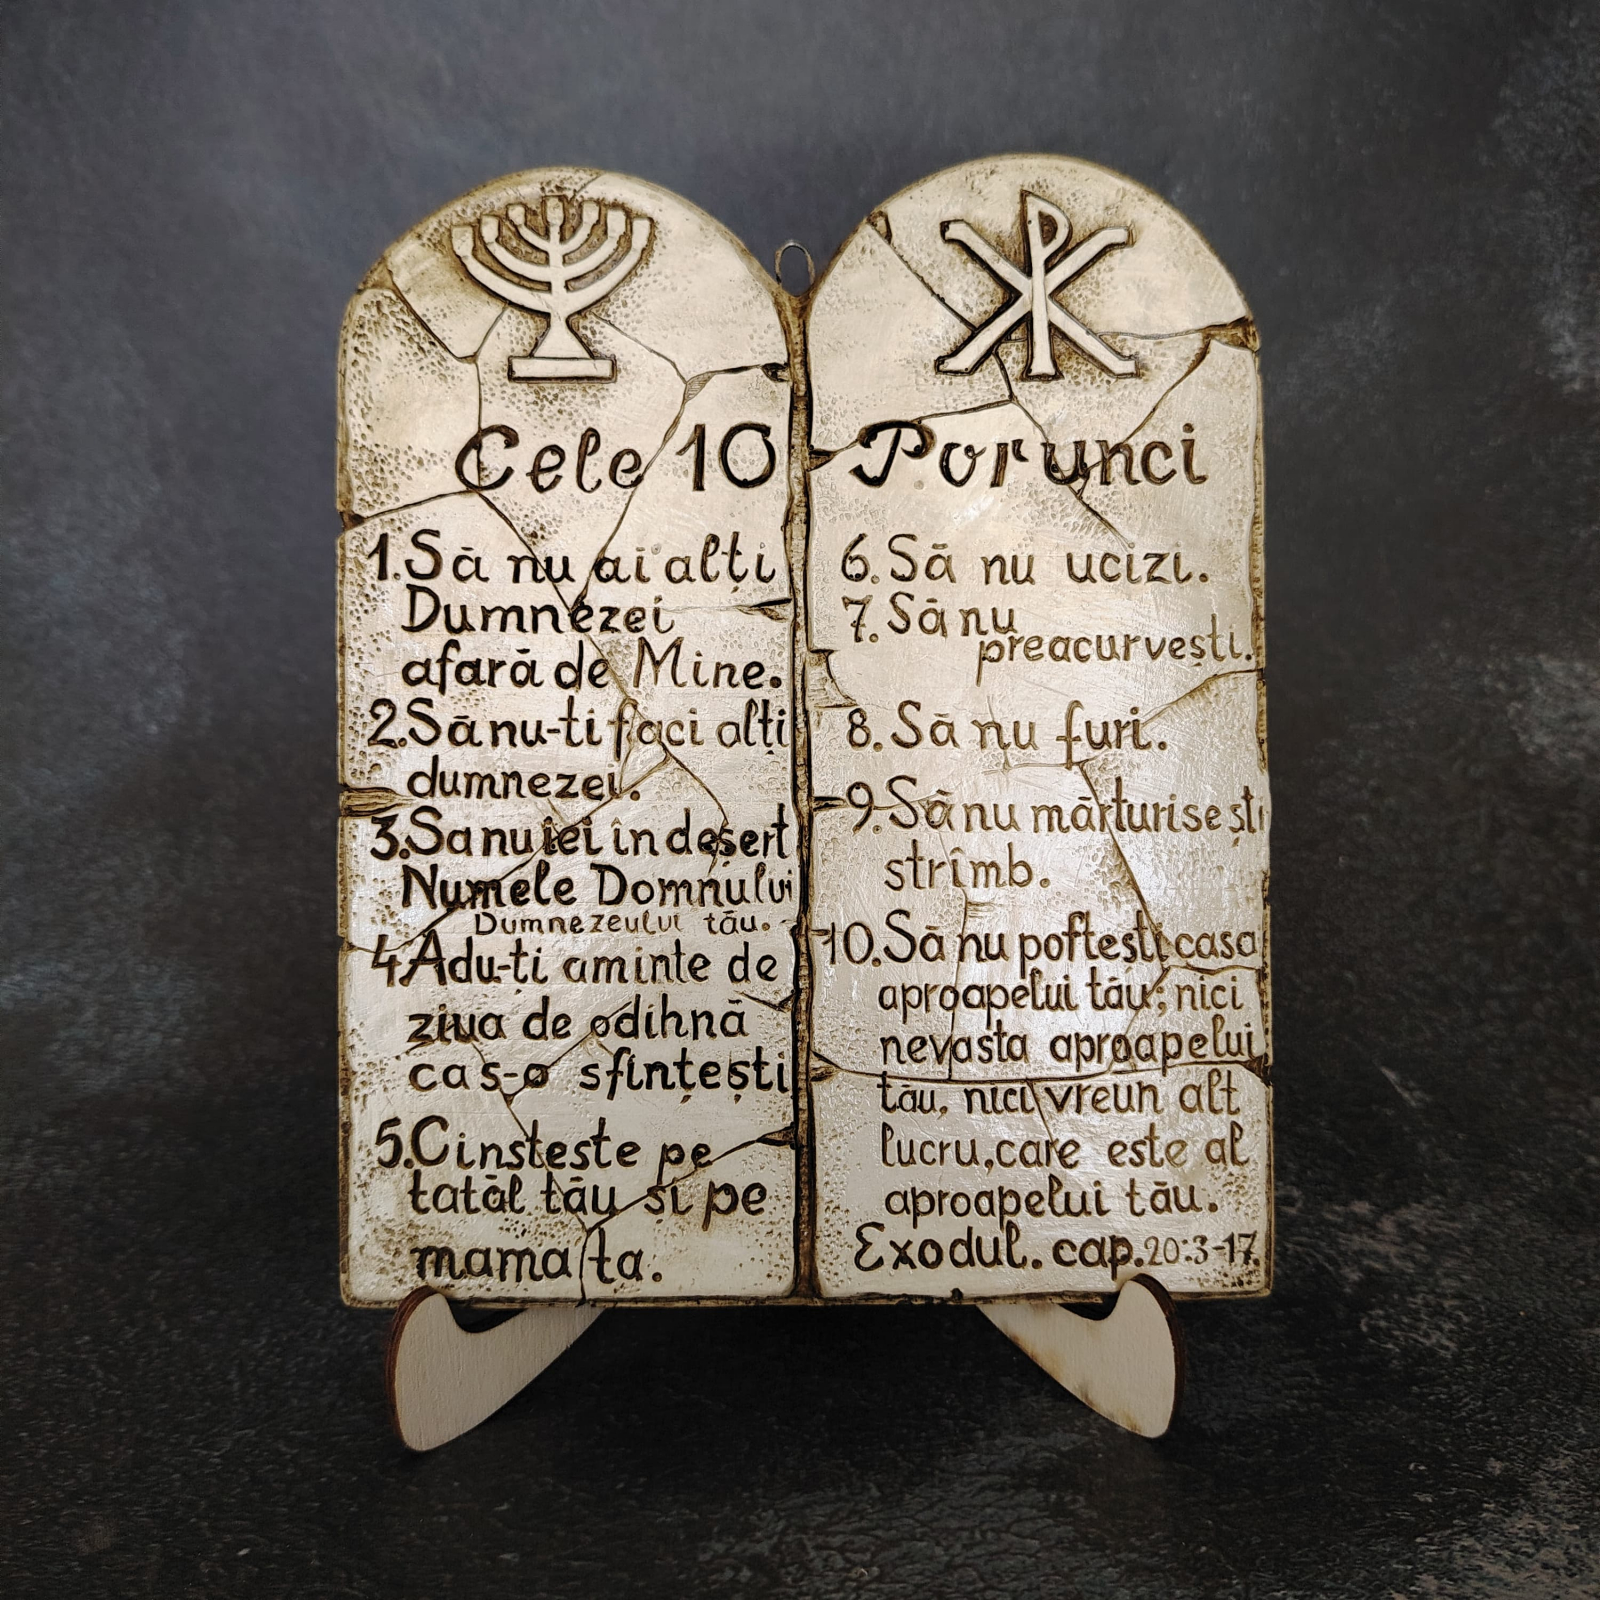 Cele 10 Porunci
1. Să nu ai alți
Dumnezei
afară de Mine.
2. Să nu-ti faci alți
dumnezei.
3. Sa nu iei în deșert
Numele Domnului
Dumnezeului tău.
4. Adu-ți aminte de
ziua de odihnă
ca s-o sfințești
5. Cinsteste pe
tatăl tău și pe
mama ta.
6. Să nu ucizi.
7. Să nu
preacurvești.
8. Să nu furi.
9. Să nu mărturisești
strîmb.
10. Să nu poftești casa
aproapelui tău; nici
nevasta aproapelui
tău, nici vreun alt
lucru, care este al
aproapelui tău.
Exodul. cap. 20:3-17.